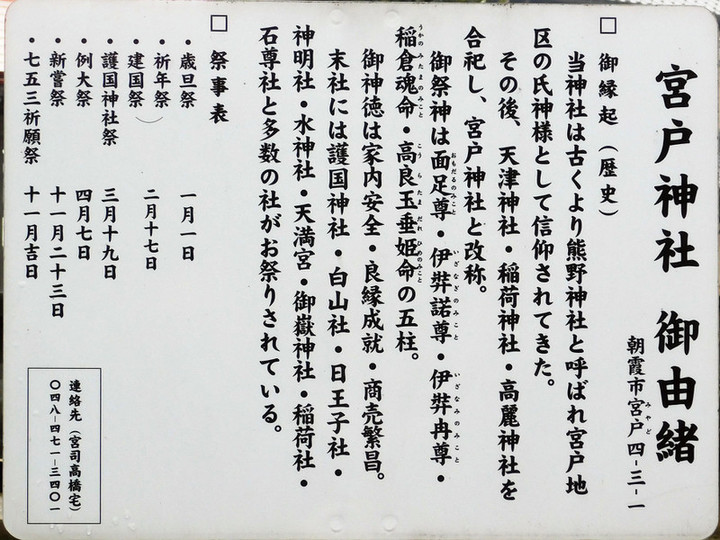 宮戸神社 御由緒
朝霞市宮戸四-三-一
みやど
□ 御縁起(歴史)
当神社は古くより熊野神社と呼ばれ宮戸地
区の氏神様として信仰されてきた。
その後、天津神社・稲荷神社・高麗神社を
合祀し、宮戸神社と改称。
御祭神は面足尊・伊弉諾尊・伊弉冉尊・
おもだるのみこと いざなぎのみこと いざなみのみこと
稲倉魂命・高良玉垂姫命の五柱。
うかのみたまのみこと こうらたまだれひめのみこと
御神徳は家内安全・良縁成就・商売繁昌。
末社には護国神社・白山社・日王子社・
神明社・水神社・天満宮・御嶽神社・稲荷社・
石尊社と多数の社がお祭りされている。
□ 祭事表
・歳旦祭 一月一日
・祈年祭
・建国祭) 二月十七日
・護国神社祭 三月十九日
・例大祭 四月七日
・新嘗祭 十一月二十三日
・七五三祈願祭 十一月吉日
連絡先(宮司高橋宅)
〇四八-四七一-三四〇一